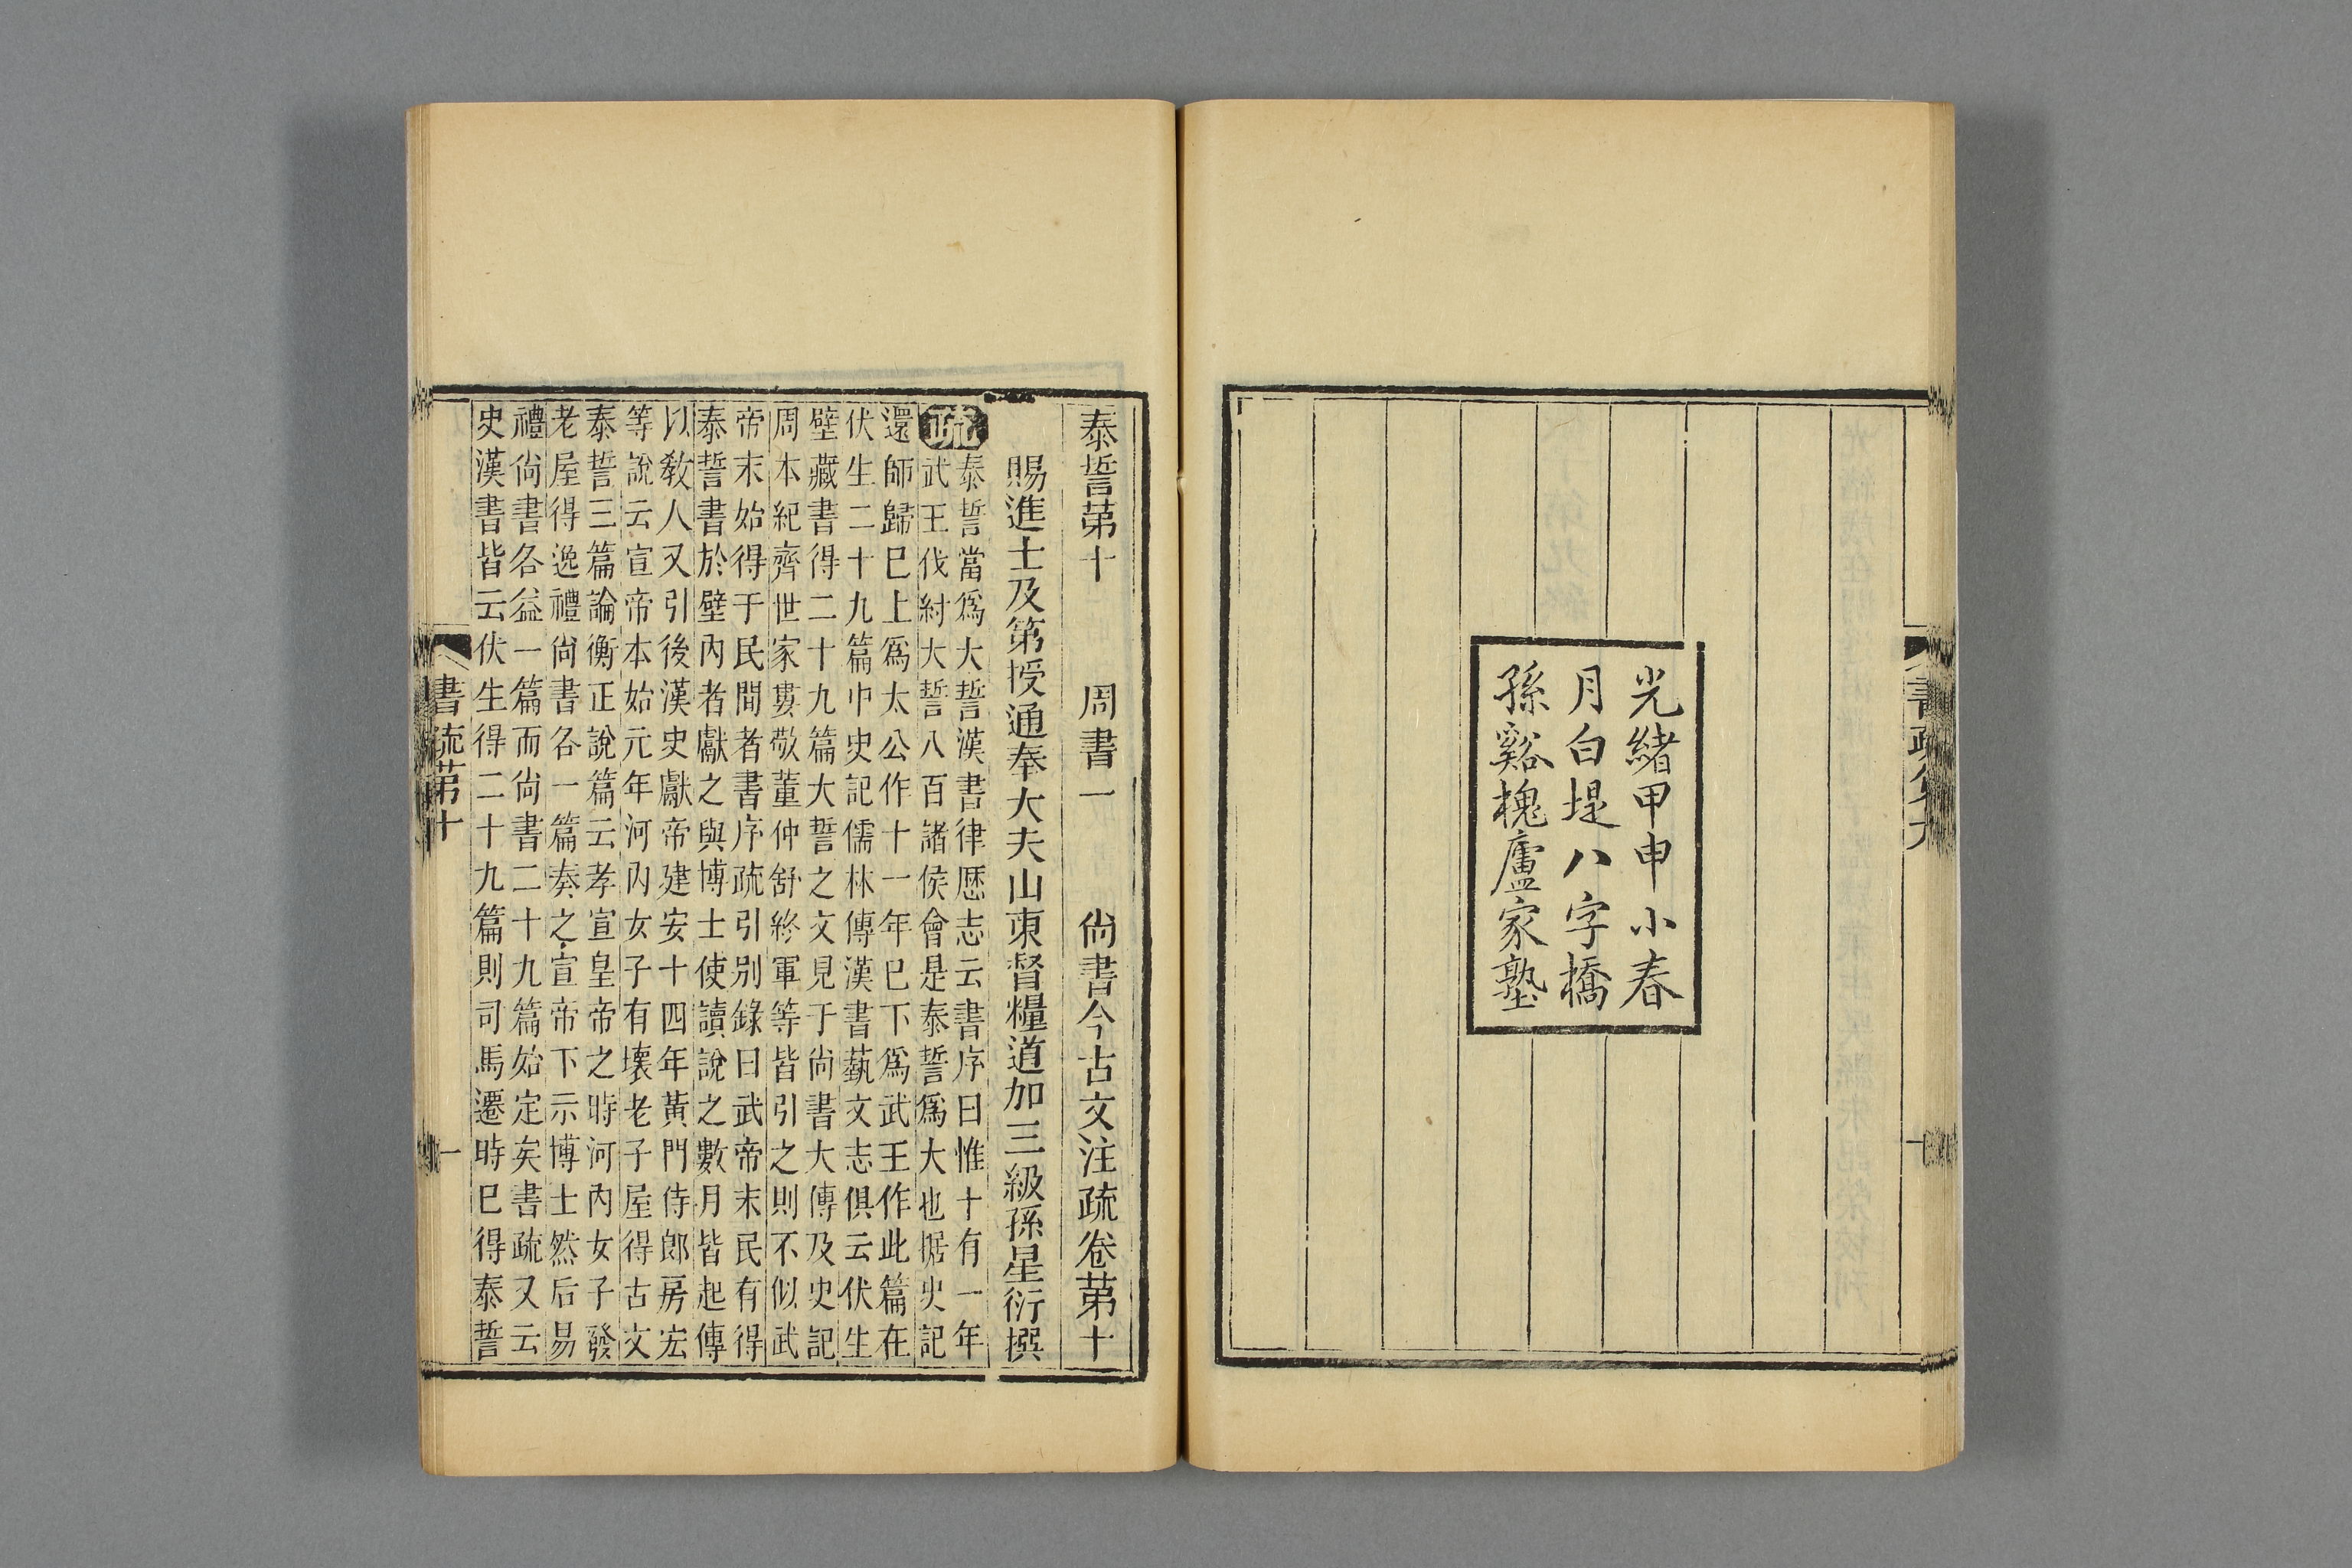 光緒甲申小春
月白堤八字橋
孫谿槐廬家塾
泰誓第十 周書一 尚書今古文注疏卷第十
賜進士及第授通奉大夫山東督糧道加三級孫星衍撰
疏
泰誓當爲大誓漢書律歷志云書序曰惟十有一年
武王伐紂大誓八百諸侯會是泰誓爲大也據史記
還師歸已上爲太公作十一年已下爲武王作此篇在
伏生二十九篇中史記儒林傳漢書藝文志俱云伏生
壁藏書得二十九篇大誓之文見于尚書大傳及史記
周本紀齊世家婁敬董仲舒終軍等皆引之則不似武
帝末始得于民間者書序疏引別錄曰武帝末民有得
泰誓書於壁內者獻之與博士使讀說之數月皆起傳
以教人又引後漢史獻帝建安十四年黃門侍郎房宏
等說云宣帝本始元年河內女子有壞老子屋得古文
泰誓三篇論衡正說篇云孝宣皇帝之時河內女子發
老屋得逸禮尚書各一篇奏之宣帝下示博士然后易
禮尚書各益一篇而尚書二十九篇始定矣書疏又云
史漢書皆云伏生得二十九篇則司馬遷時已得泰誓
書疏第十
一